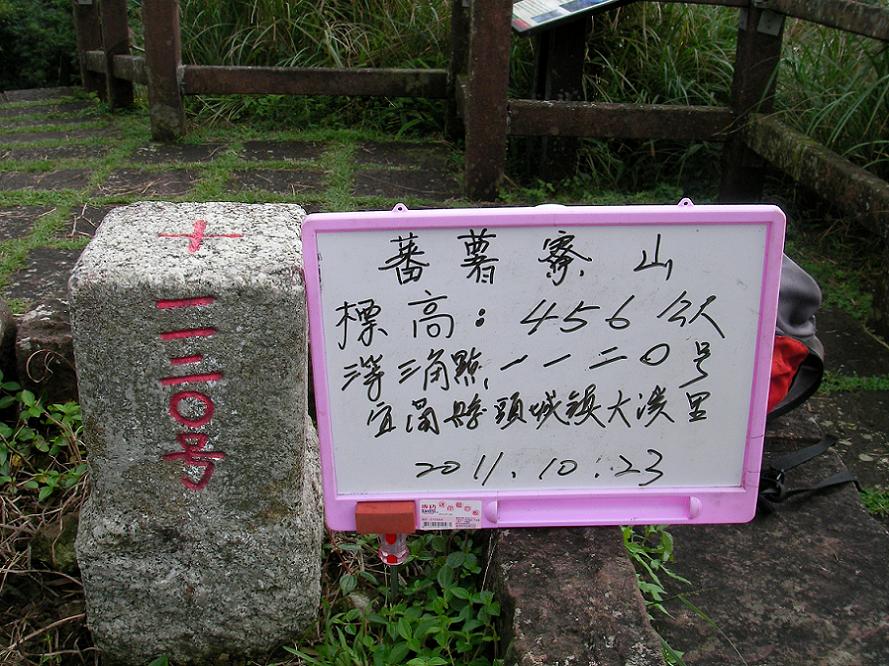 一一二〇号
蕃薯寮山
標高：456公尺
三等三角點，一一二〇号
宜蘭縣頭城鎮大溪里
2011.10.23